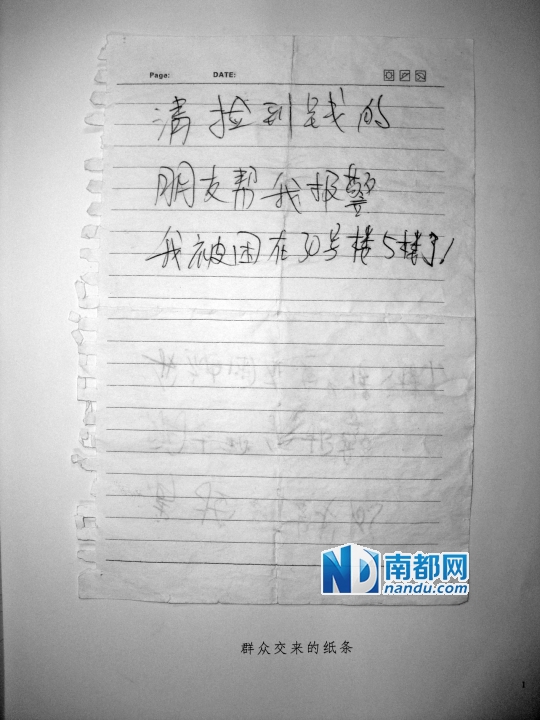 Page: DATE:
清捡到钱的
朋友帮我报警
我被困在30号楼5楼了!
ND南都网
nandu.com
群众交来的纸条
1